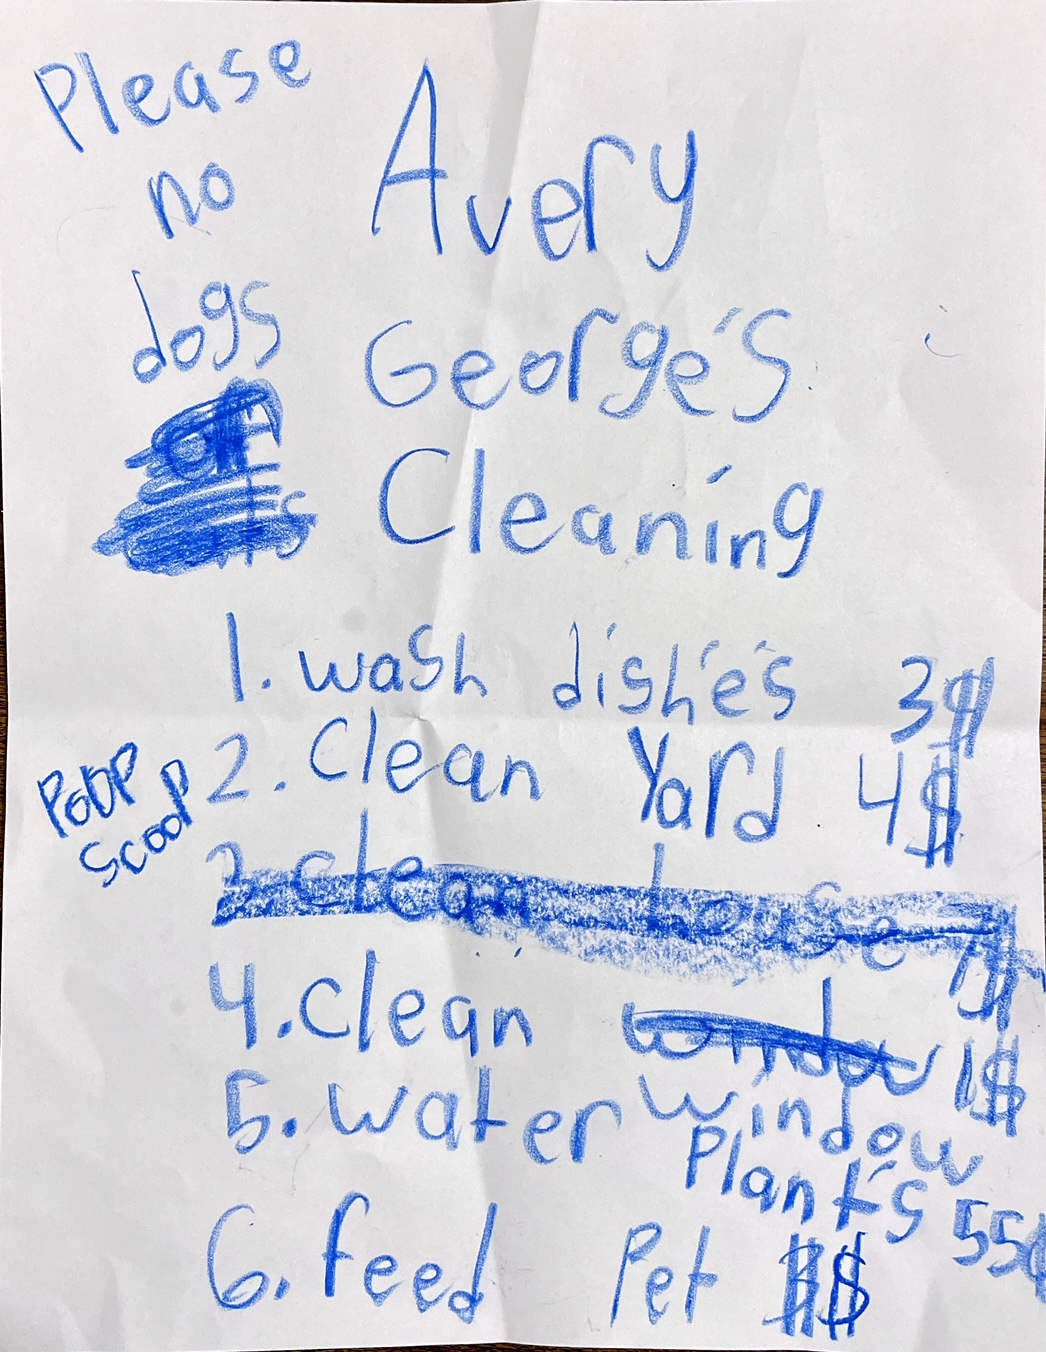 Please
no
dogs
Avery
George's
Cleaning
1. wash dish'e's 3$
2. Clean Yard 4$
Poop
Scoop
3. clean house
4. clean window 1$
window
5. water Plant's 55¢
6. feed Pet $